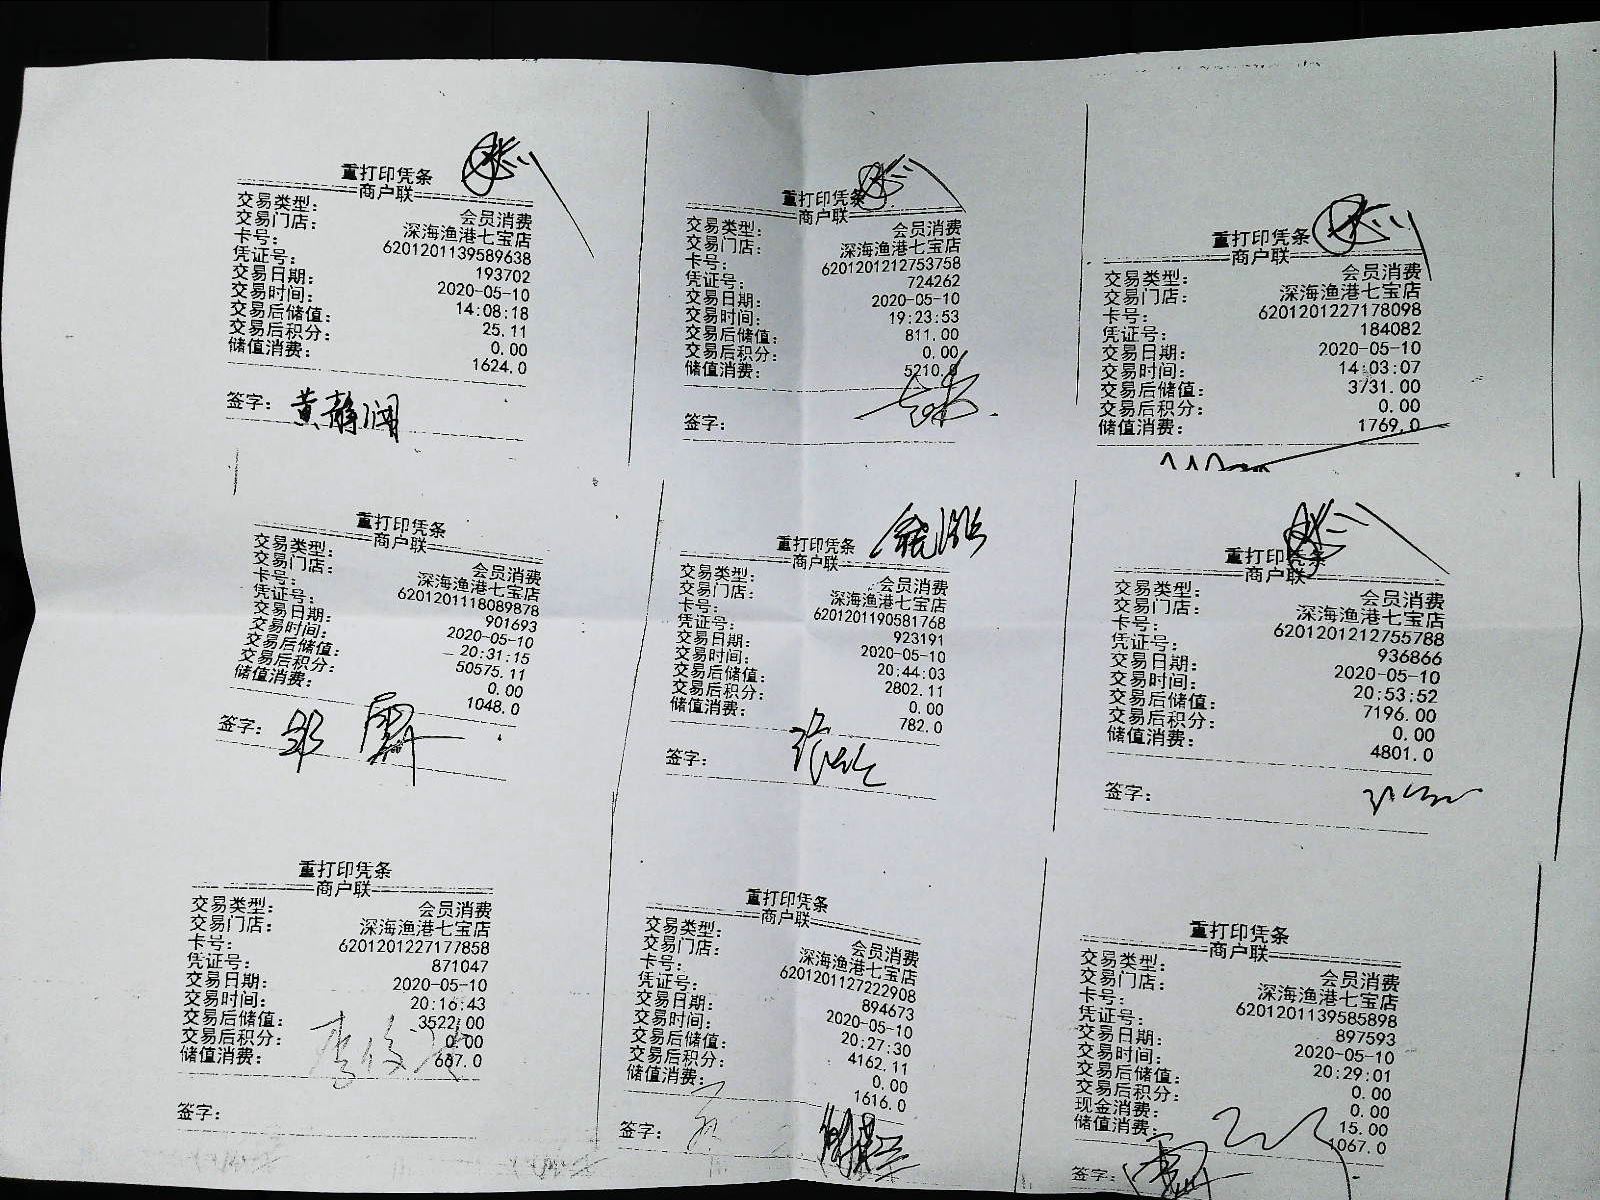 重打印凭条
商户联
交易类型： 会员消费
交易门店： 深海渔港七宝店
卡号： 6201201139589638
凭证号： 193702
交易日期： 2020-05-10
交易时间： 14:08:18
交易后储值： 25.11
交易后积分： 0.00
储值消费： 1624.0
签字： 黄静润
重打印凭条
商户联
交易类型： 会员消费
交易门店： 深海渔港七宝店
卡号： 6201201212753758
凭证号： 724262
交易日期： 2020-05-10
交易时间： 19:23:53
交易后储值： 811.00
交易后积分： 0.00
储值消费： 5210.0
签字：
重打印凭条
商户联
交易类型： 会员消费
交易门店： 深海渔港七宝店
卡号： 6201201227178098
凭证号： 184082
交易日期： 2020-05-10
交易时间： 14:03:07
交易后储值： 3731.00
交易后积分： 0.00
储值消费： 1769.0
重打印凭条
商户联
交易类型： 会员消费
交易门店： 深海渔港七宝店
卡号： 6201201118089878
凭证号： 901693
交易日期： 2020-05-10
交易时间： 20:31:15
交易后储值： 50575.11
交易后积分： 0.00
储值消费： 1048.0
签字：
重打印凭条
商户联
交易类型： 会员消费
交易门店： 深海渔港七宝店
卡号： 6201201190581768
凭证号： 923191
交易日期： 2020-05-10
交易时间： 20:44:03
交易后储值： 2802.11
交易后积分： 0.00
储值消费： 782.0
签字：
重打印凭条
商户联
交易类型： 会员消费
交易门店： 深海渔港七宝店
卡号： 6201201212755788
凭证号： 936866
交易日期： 2020-05-10
交易时间： 20:53:52
交易后储值： 7196.00
交易后积分： 0.00
储值消费： 4801.0
签字：
重打印凭条
商户联
交易类型： 会员消费
交易门店： 深海渔港七宝店
卡号： 6201201227177858
凭证号： 871047
交易日期： 2020-05-10
交易时间： 20:16:43
交易后储值： 3522.00
交易后积分： 0.00
储值消费： 667.0
签字：
重打印凭条
商户联
交易类型： 会员消费
交易门店： 深海渔港七宝店
卡号： 6201201127222908
凭证号： 894673
交易日期： 2020-05-10
交易时间： 20:27:30
交易后储值： 4162.11
交易后积分： 0.00
储值消费： 1616.0
签字：
重打印凭条
商户联
交易类型： 会员消费
交易门店： 深海渔港七宝店
卡号： 6201201139585898
凭证号： 897593
交易日期： 2020-05-10
交易时间： 20:29:01
交易后储值： 0.00
交易后积分： 0.00
现金消费： 15.00
储值消费： 1067.0
签字：